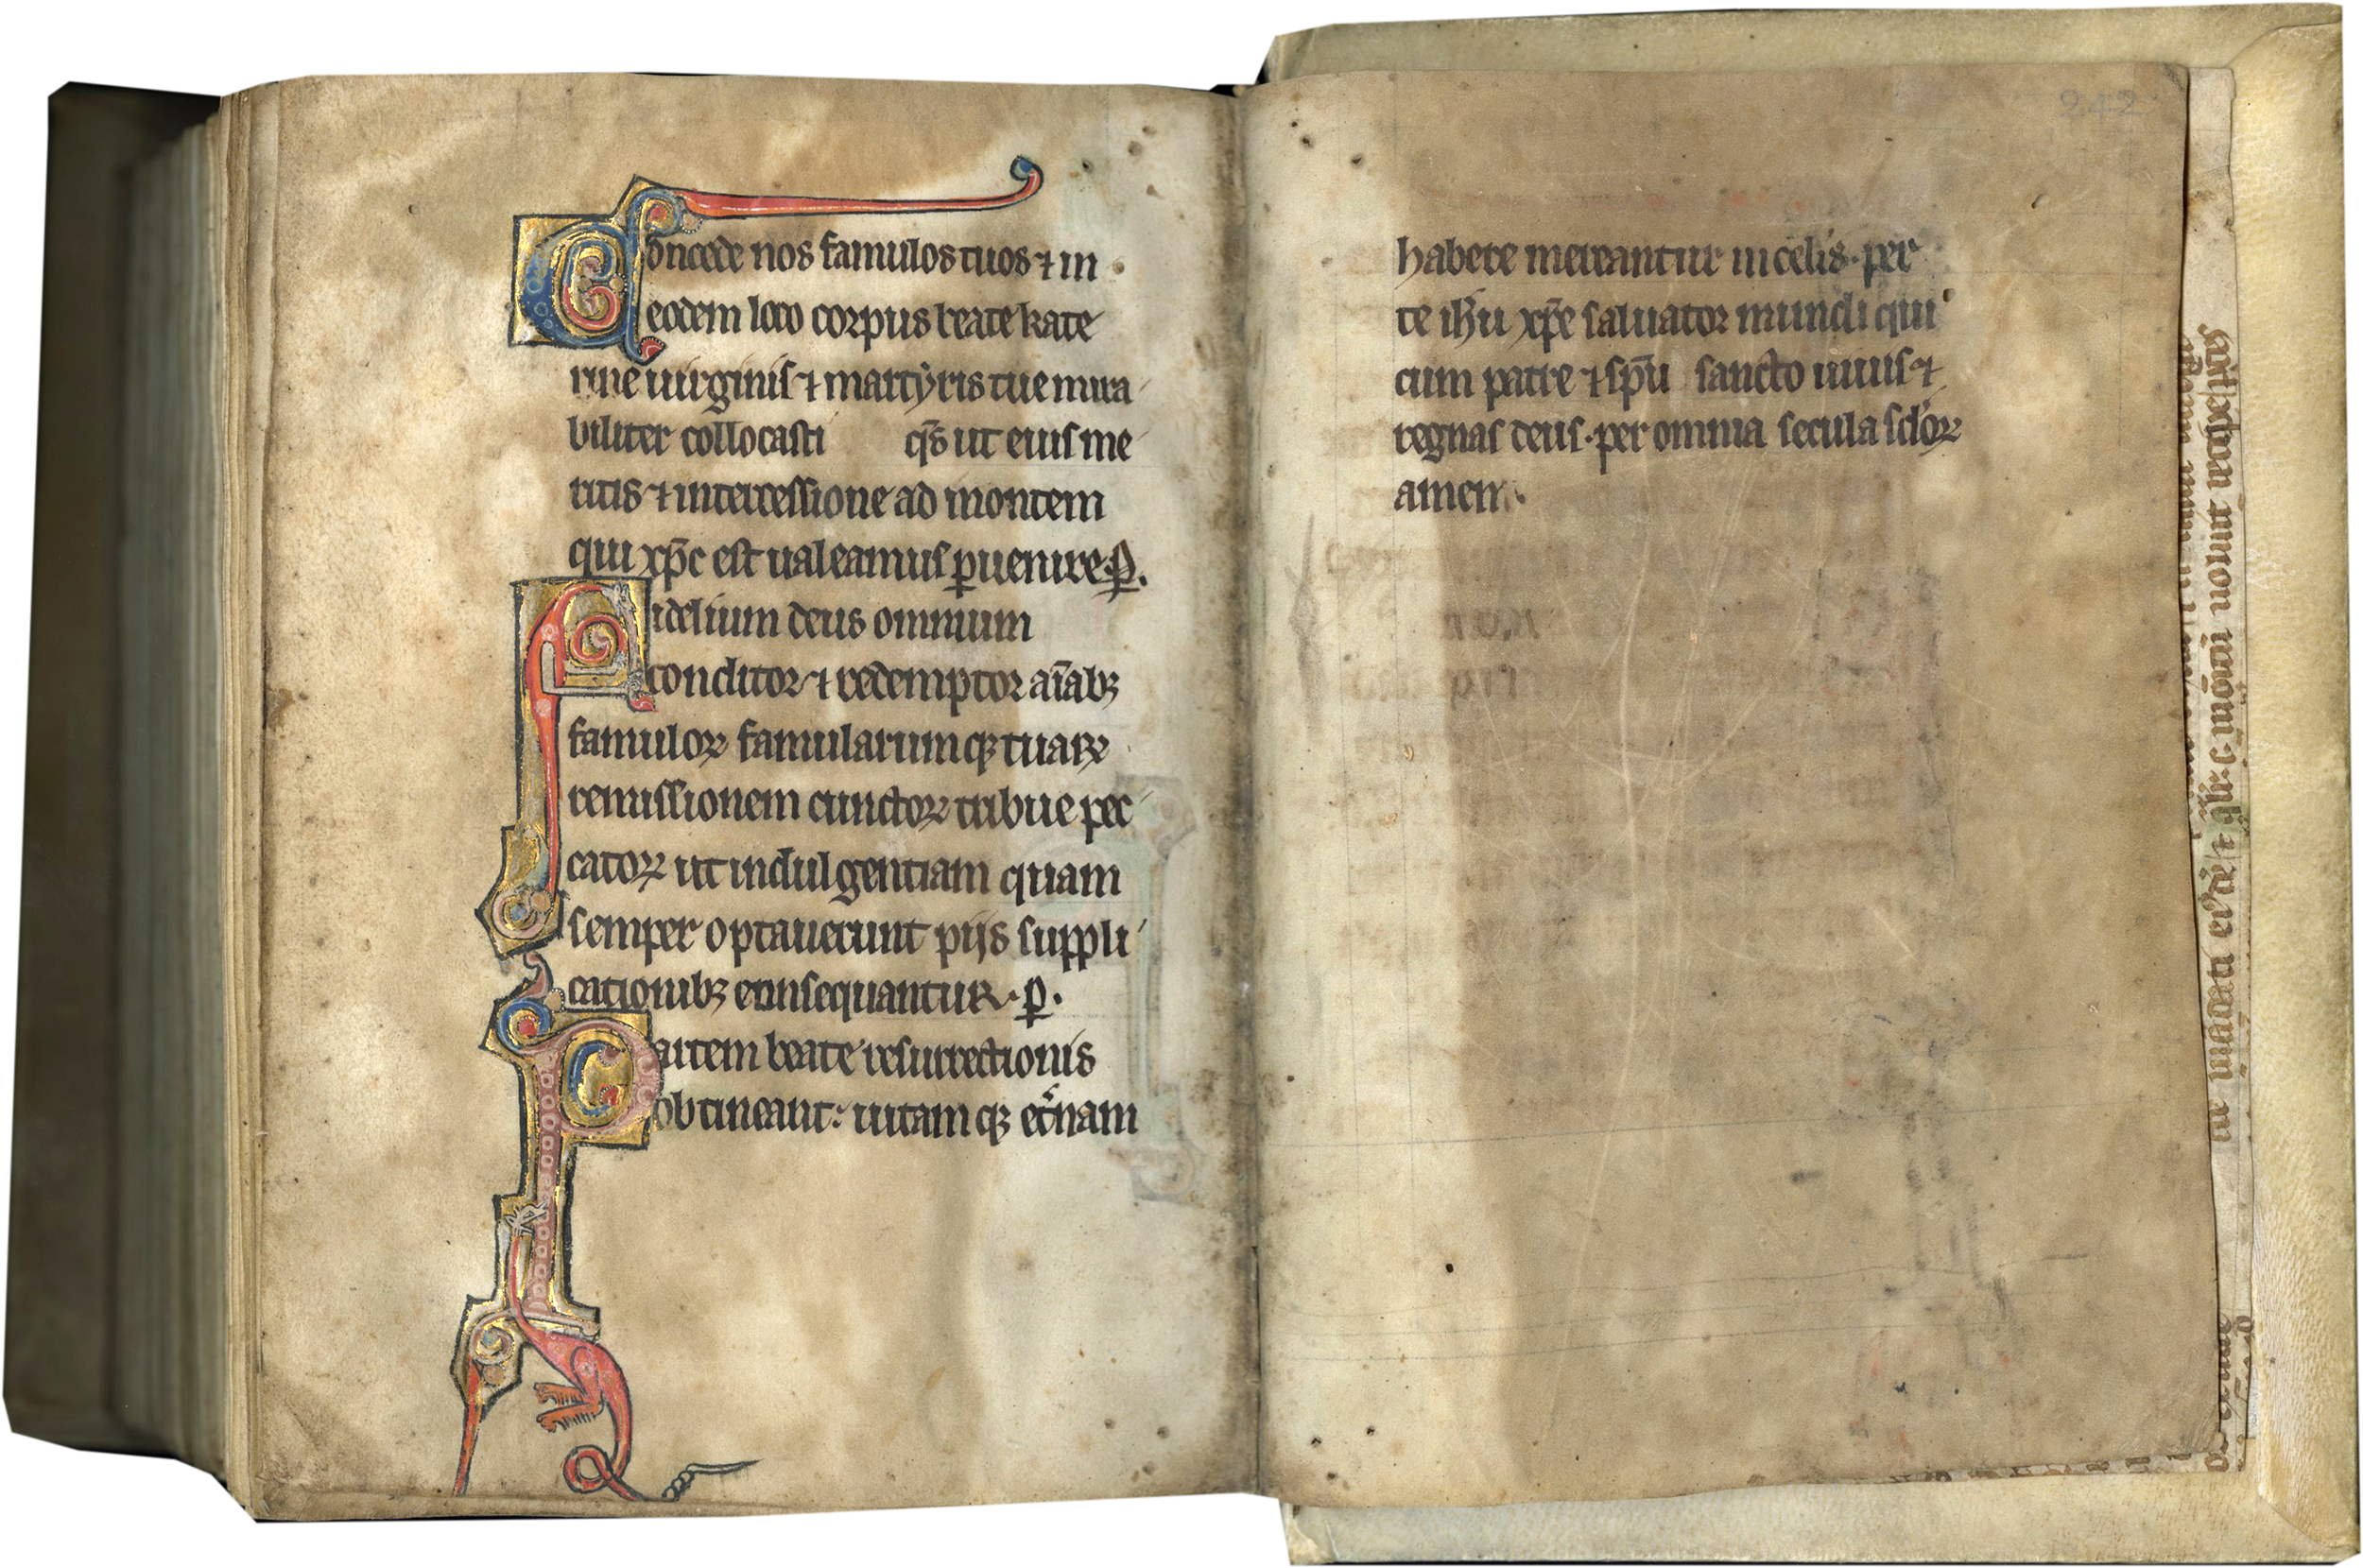 Concede nos famulos tuos ⁊ in
eodem loco corpus beate kate
rine uirginis ⁊ martẏris tue mira
biliter collocasti q̄s ut eius me
ritis ⁊ intercessione ad montem
qui xp̄c est ualeamus ꝑuenire. ꝑ.
Fidelium deus omnium
conditor ⁊ redemptor aīabꝫ
famuloꝝ famularumqꝫ tuaꝝ
remissionem cunctoꝝ tribue pec
catoꝝ ut indulgentiam quam
semper optauerunt pijs suppli
cationibꝫ consequantur. ꝑ.
Partem beate resurrectionis
obtineant: uitamqꝫ et̾nam
242
habere mereantur in celis. per
te ih̄u xp̄e saluator mundi qui
cum patre ⁊ sp̄u sancto uiuis ⁊
regnas deus. per omnia secula sc̄loꝝ
amen.